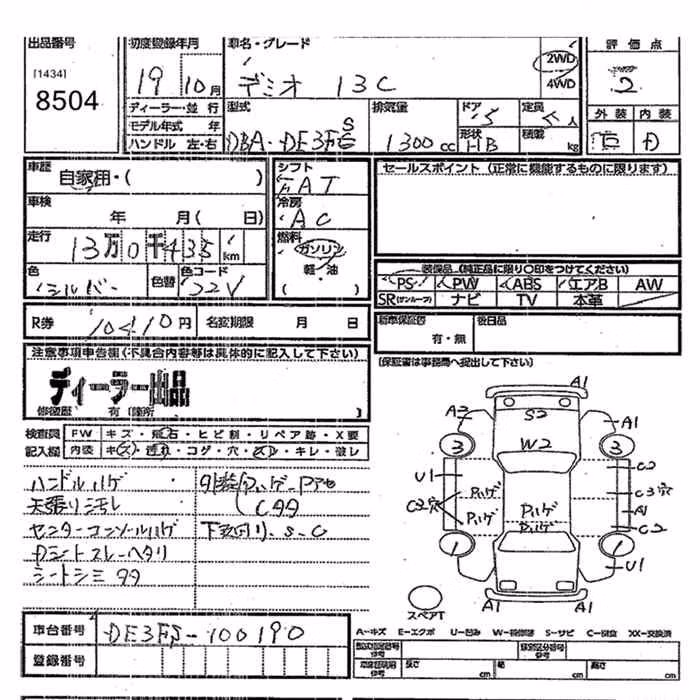 出品番号
[1434]
8504
初度登録年月
19 10月
ディーラー・並 行
モデル年式 年
ハンドル 左・右
車名・グレード
デミオ 13C
2WD
4WD
型式
DBA-DE3FS
排気量
1300cc
ドア
5
形状
HB
定員
5人
積載
kg
評価点
2
外装 内装
D
車歴
自家用・( )
車検
年 月( 日)
走行
13万0千435km
色
シルバー
色替
色コード
22V
シフト
AT
冷房
AC
燃料
ガソリン
軽・油
( )
セールスポイント (正常に機能するものに限ります)
装備品 (純正品に限り○印をつけてください)
PS PW ABS エアB AW
SR(サンルーフ) ナビ TV 本革
R券 10410円 名変期限 月 日
新車保証書
有・無
後日品
(保証書は事務局へ提出して下さい)
注意事項申告欄(不具合内容等は具体的に記入して下さい)
ディーラー出品
修復歴 有 (箇所 )
検査員
記入欄
FW キズ・飛石・ヒビ割・リペア跡・X要
内装 キズ・汚れ・コゲ・穴・スレ・キレ・破レ
ハンドルハゲ
天張りヨゴレ
センターコンソールハゲ
Dシートスレ・ヘタリ
シートシミタタ
外装
Cタタ
下廻り.S.C
A1
A2 S2 A1
3 W2 3
U1 C2
C2穴 Pハゲ Pハゲ C3穴
Pハゲ Pハゲ A1
C2
1 1
U1
A1 A1
スペアT
車台番号
DE3FS-100190
登録番号
A-キズ E-エクボ U-凹み W-補修跡 S-サビ C-腐食 XX-交換済
型式指定番号
参考
類別区分番号
参考
車庫証明用
参考
長さ cm 幅 cm 高さ cm